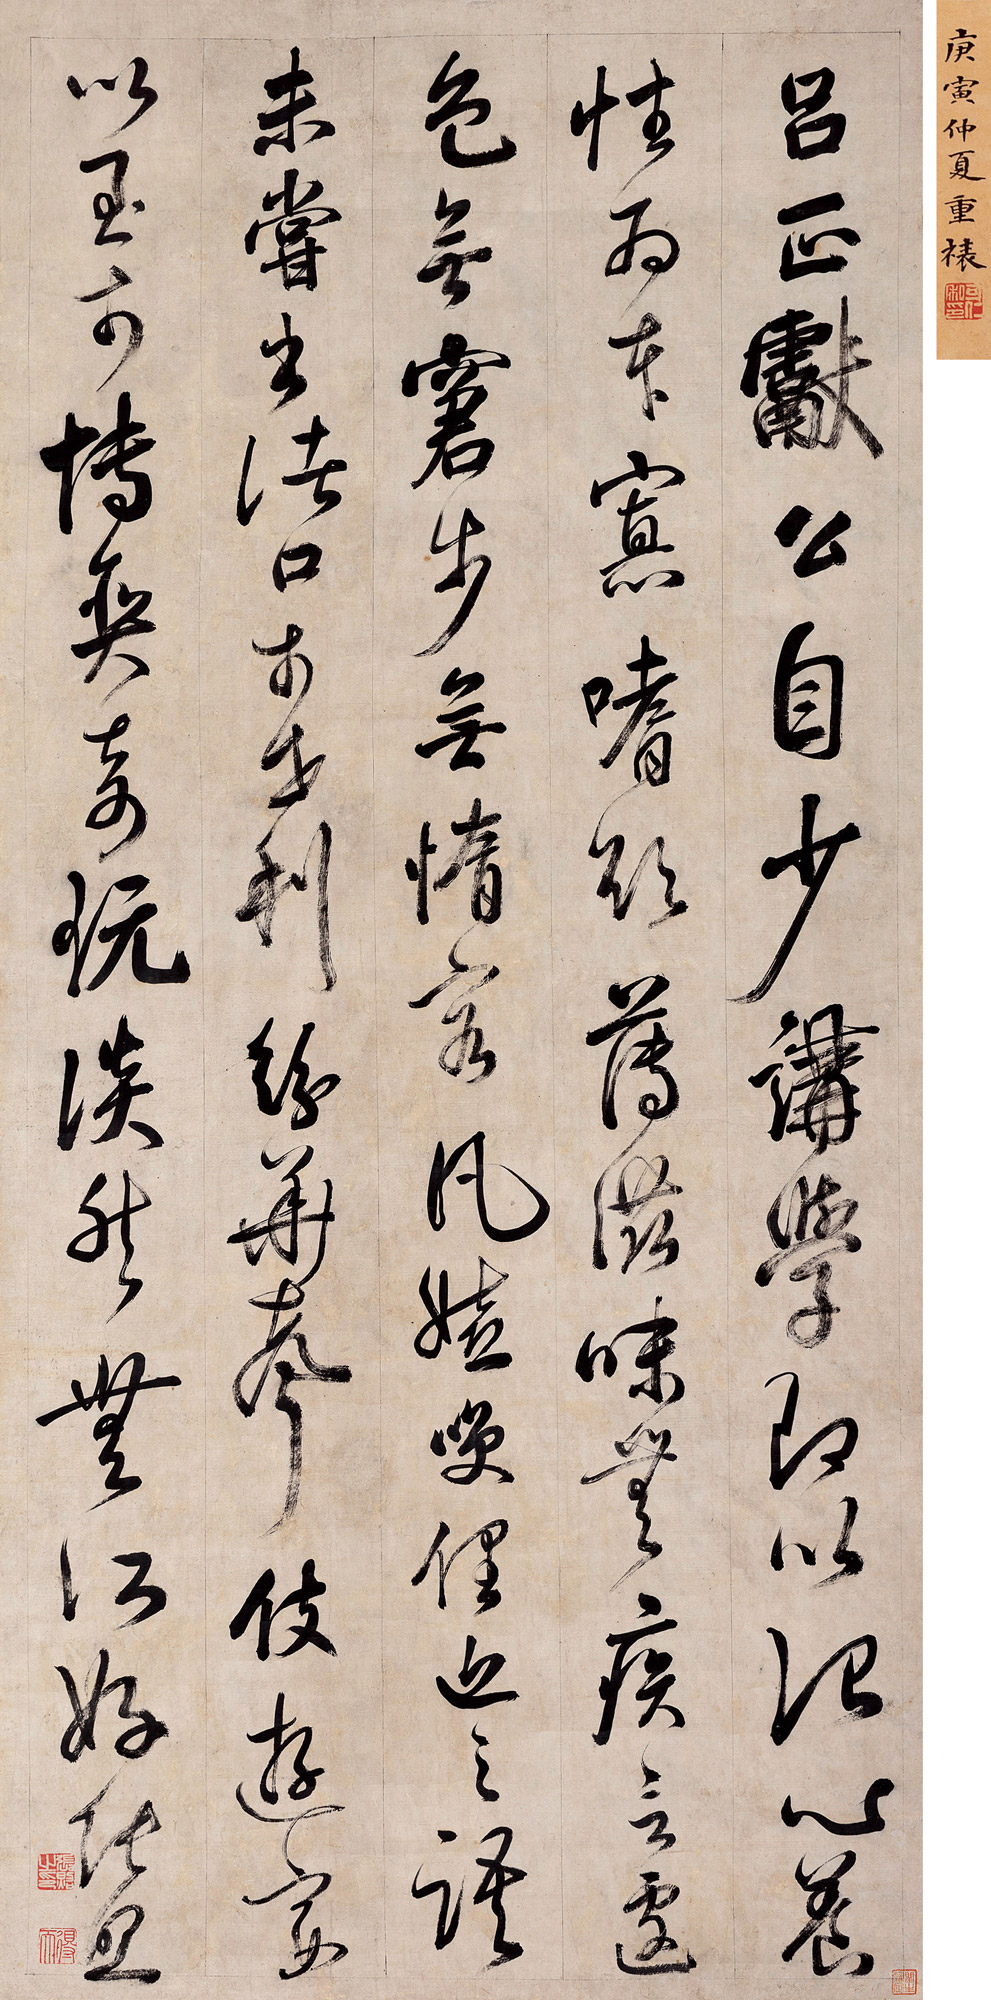 庚寅仲夏重裱
呂正獻公自少講學即以治心養
性為本寡嗜慾薄滋味無疾言遽
色無窘步無惰容凡嬉笑俚近之語
未嘗出諸口於世利紛華聲伎遊宴
以至於博奕奇玩淡然無所好張照
張照之印
得天